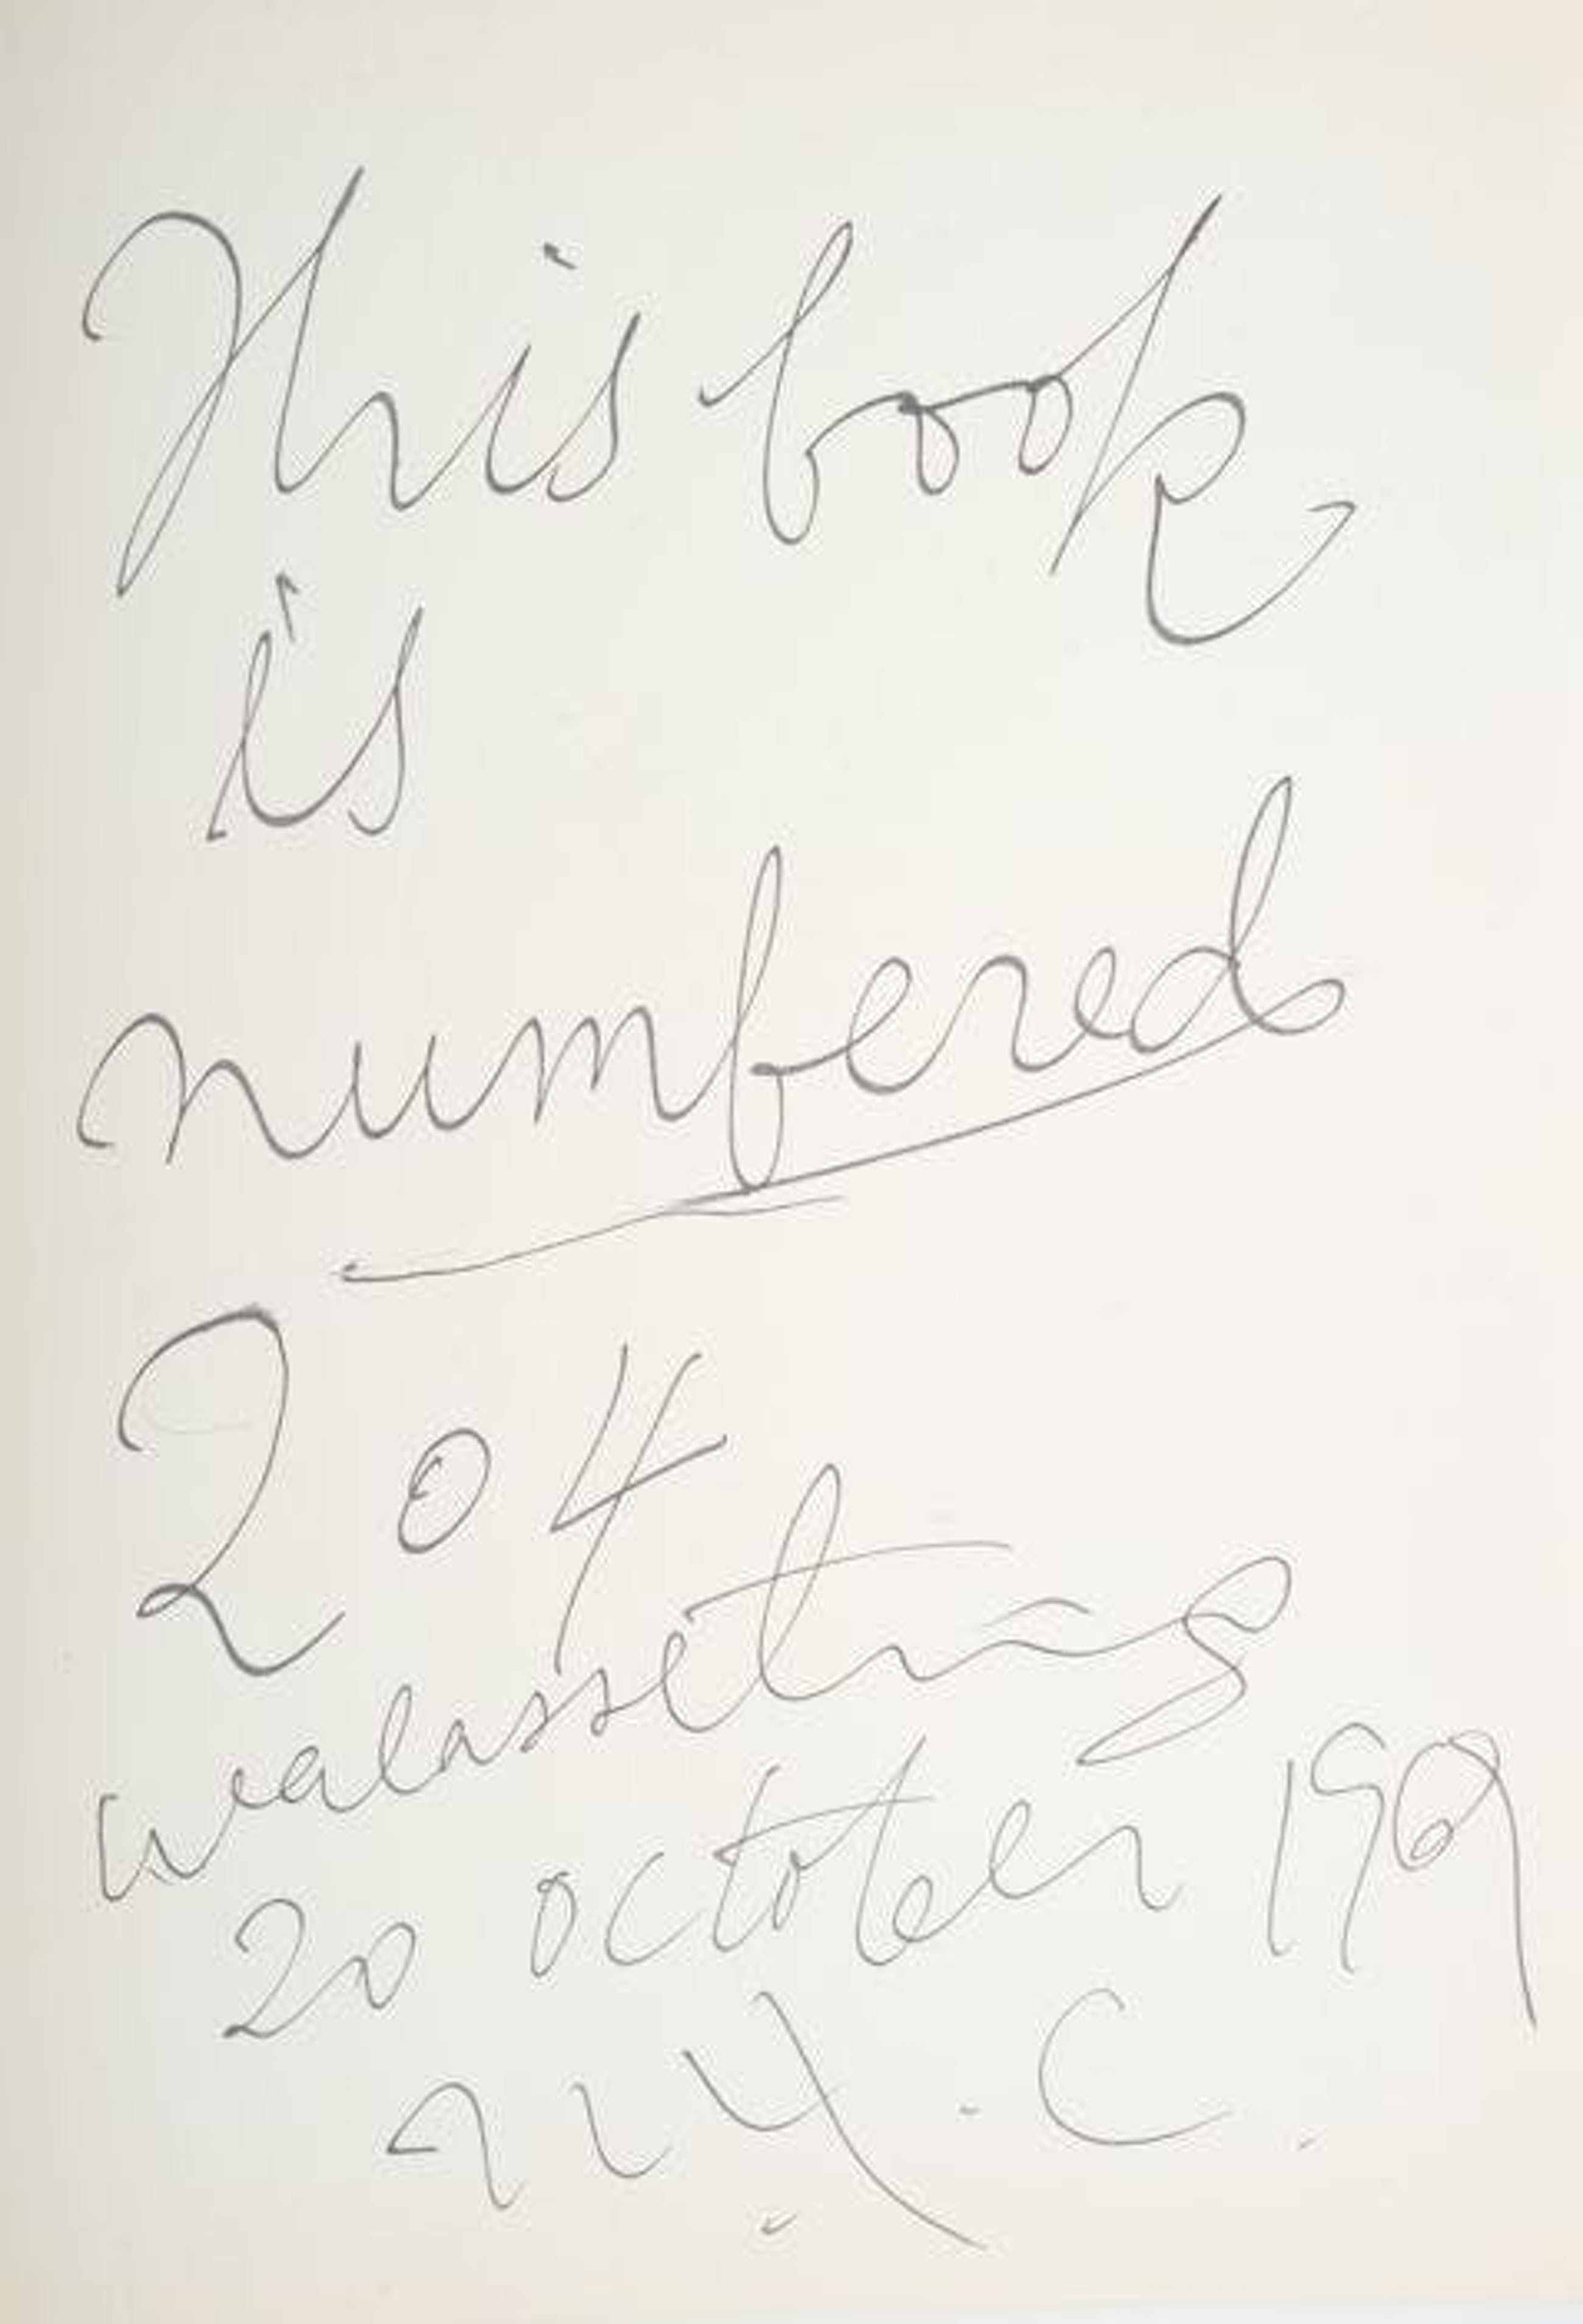 This book
is
numbered
204
walasse ting
20 october
N.Y.C.